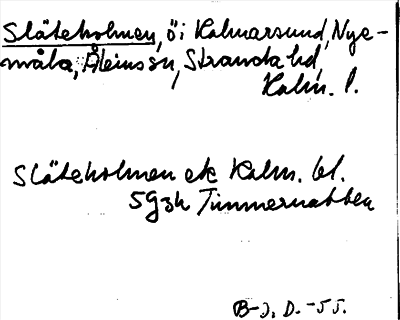 Släteholmen, ö i Kalmarsund, Nye-
måla, Ålems sn, Stranda hd,
Kalm. l.
Släteholmen ek Kalm. bl.
5g3h Timmernabben
B-J, D. -55.